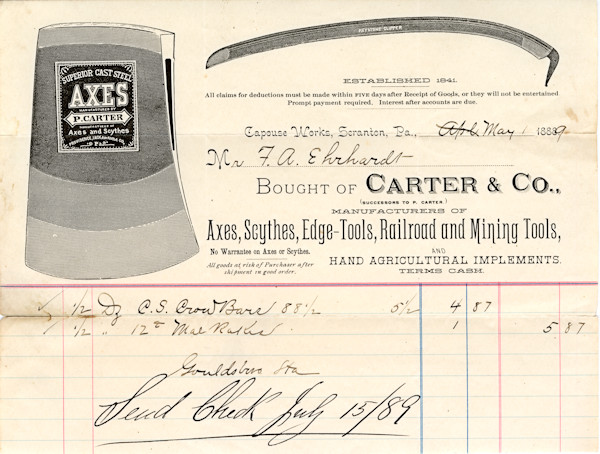 KEYSTONE CLIPPER
SUPERIOR CAST STEEL
AXES
MANUFACTURED BY
P. CARTER
MANUFACTURER OF
Axes and Scythes
ESTABLISHED 1841.
All claims for deductions must be made within FIVE days after Receipt of Goods, or they will not be entertained
Prompt payment required. Interest after accounts are due.
Capouse Works, Scranton, Pa., May 1 1889
Mr F. A. Ehrhardt
BOUGHT OF CARTER & CO.,
(SUCCESSORS TO P. CARTER)
MANUFACTURERS OF
Axes, Scythes, Edge-Tools, Railroad and Mining Tools,
No Warrantee on Axes or Scythes. AND
All goods at risk of Purchaser after HAND AGRICULTURAL IMPLEMENTS.
shipment in good order. TERMS CASH.
1/2 Dz C. S. Crow Bars 88 1/2 5 1/2 4 87
1/2 " 12 Rakes 1 5 87
Gouldsboro Sta
Send Check July 15/89